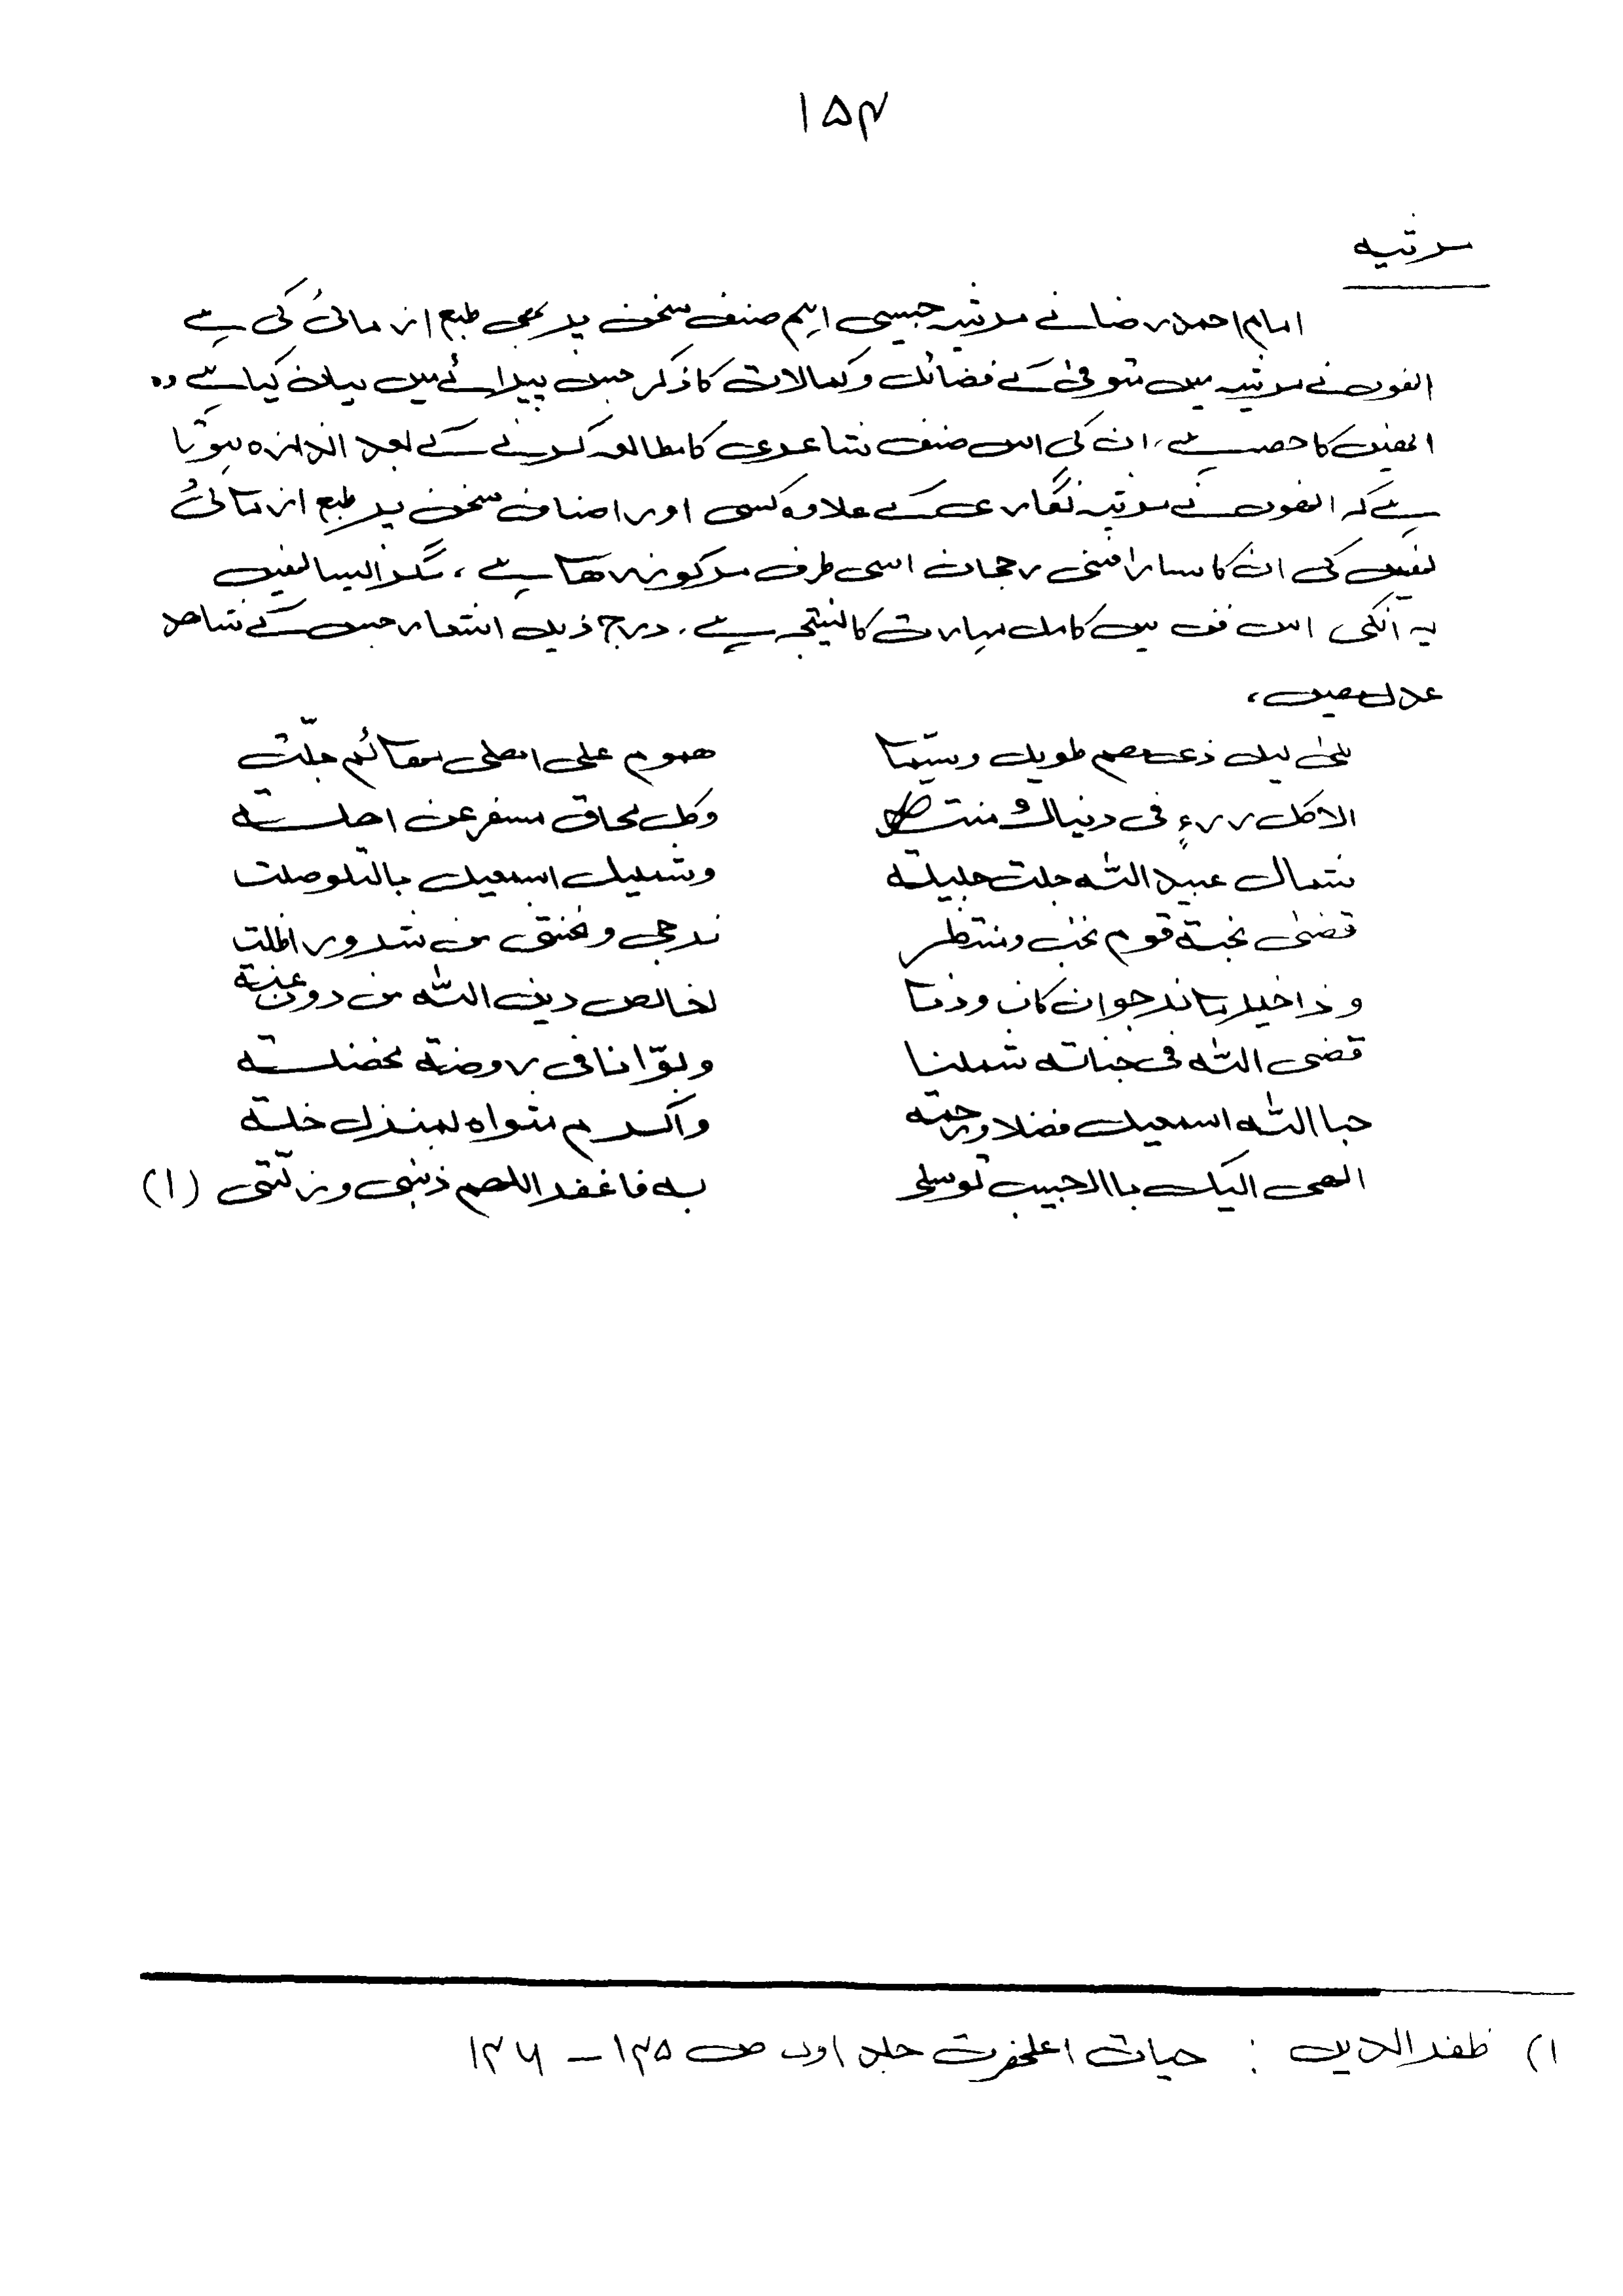 ۱۵۴
مرثیہ
امام احمد رضا نے مرثیہ جیسی اہم صنف سخن پر بھی طبع از مائی کی ہے
انھوں نے مرثیہ میں متوفیٰ کے فضائل و کمالات کا ذکر جس پیرائے میں بیان کیا ہے وہ
انھیں کا حصہ ہے، ان کی اس صنف شاعری کا مطالعہ کرنے کے بعد اندازہ ہوتا
ہے کہ انھوں نے مرثیہ نگاری کے علاوہ کسی اور اصناف سخن پر طبع از مائی
نہیں کی ان کا سارا فنی رجحان اسی طرف مرکوز رہا ہے، مگر ایسا نہیں
یہ انکی اس فن میں کامل مہارت کا نتیجہ ہے، درج ذیل اشعار جس کے شاھد
عدل ھیں،
بلیٰ لیل ذی ھم طویل وسیّما ھموم علی اھلی جلّت
الا کل رزء فی دنیاک وکل محاق مسفر عن اھلتہ
شمال عبید اللہ جلت جلیلتہ وشملیل اسمعیل بالتلو صلت
قضیٰ نحبہ قوم نحب ومنتظر نرجی ونخشی من شرور اظلت
وذا خیر ما نرجو ان کان وذنا لخالص دین اللہ من دون
قضی اللہ فی جناتہ شملنا وبوّانا فی روضة مخضلتہ
حبا اللہ اسمعیل فضلا ورحمتہ واکرم مثواہ لمنزل خلتہ
الھی الیک باالحبیب توسلی بہ فاغفر اللھم ذنبی وزلّتی (۱)
۱) ظفر الدین : حیات اعلحضرت جلد اول ص ۱۴۵ – ۱۴۶